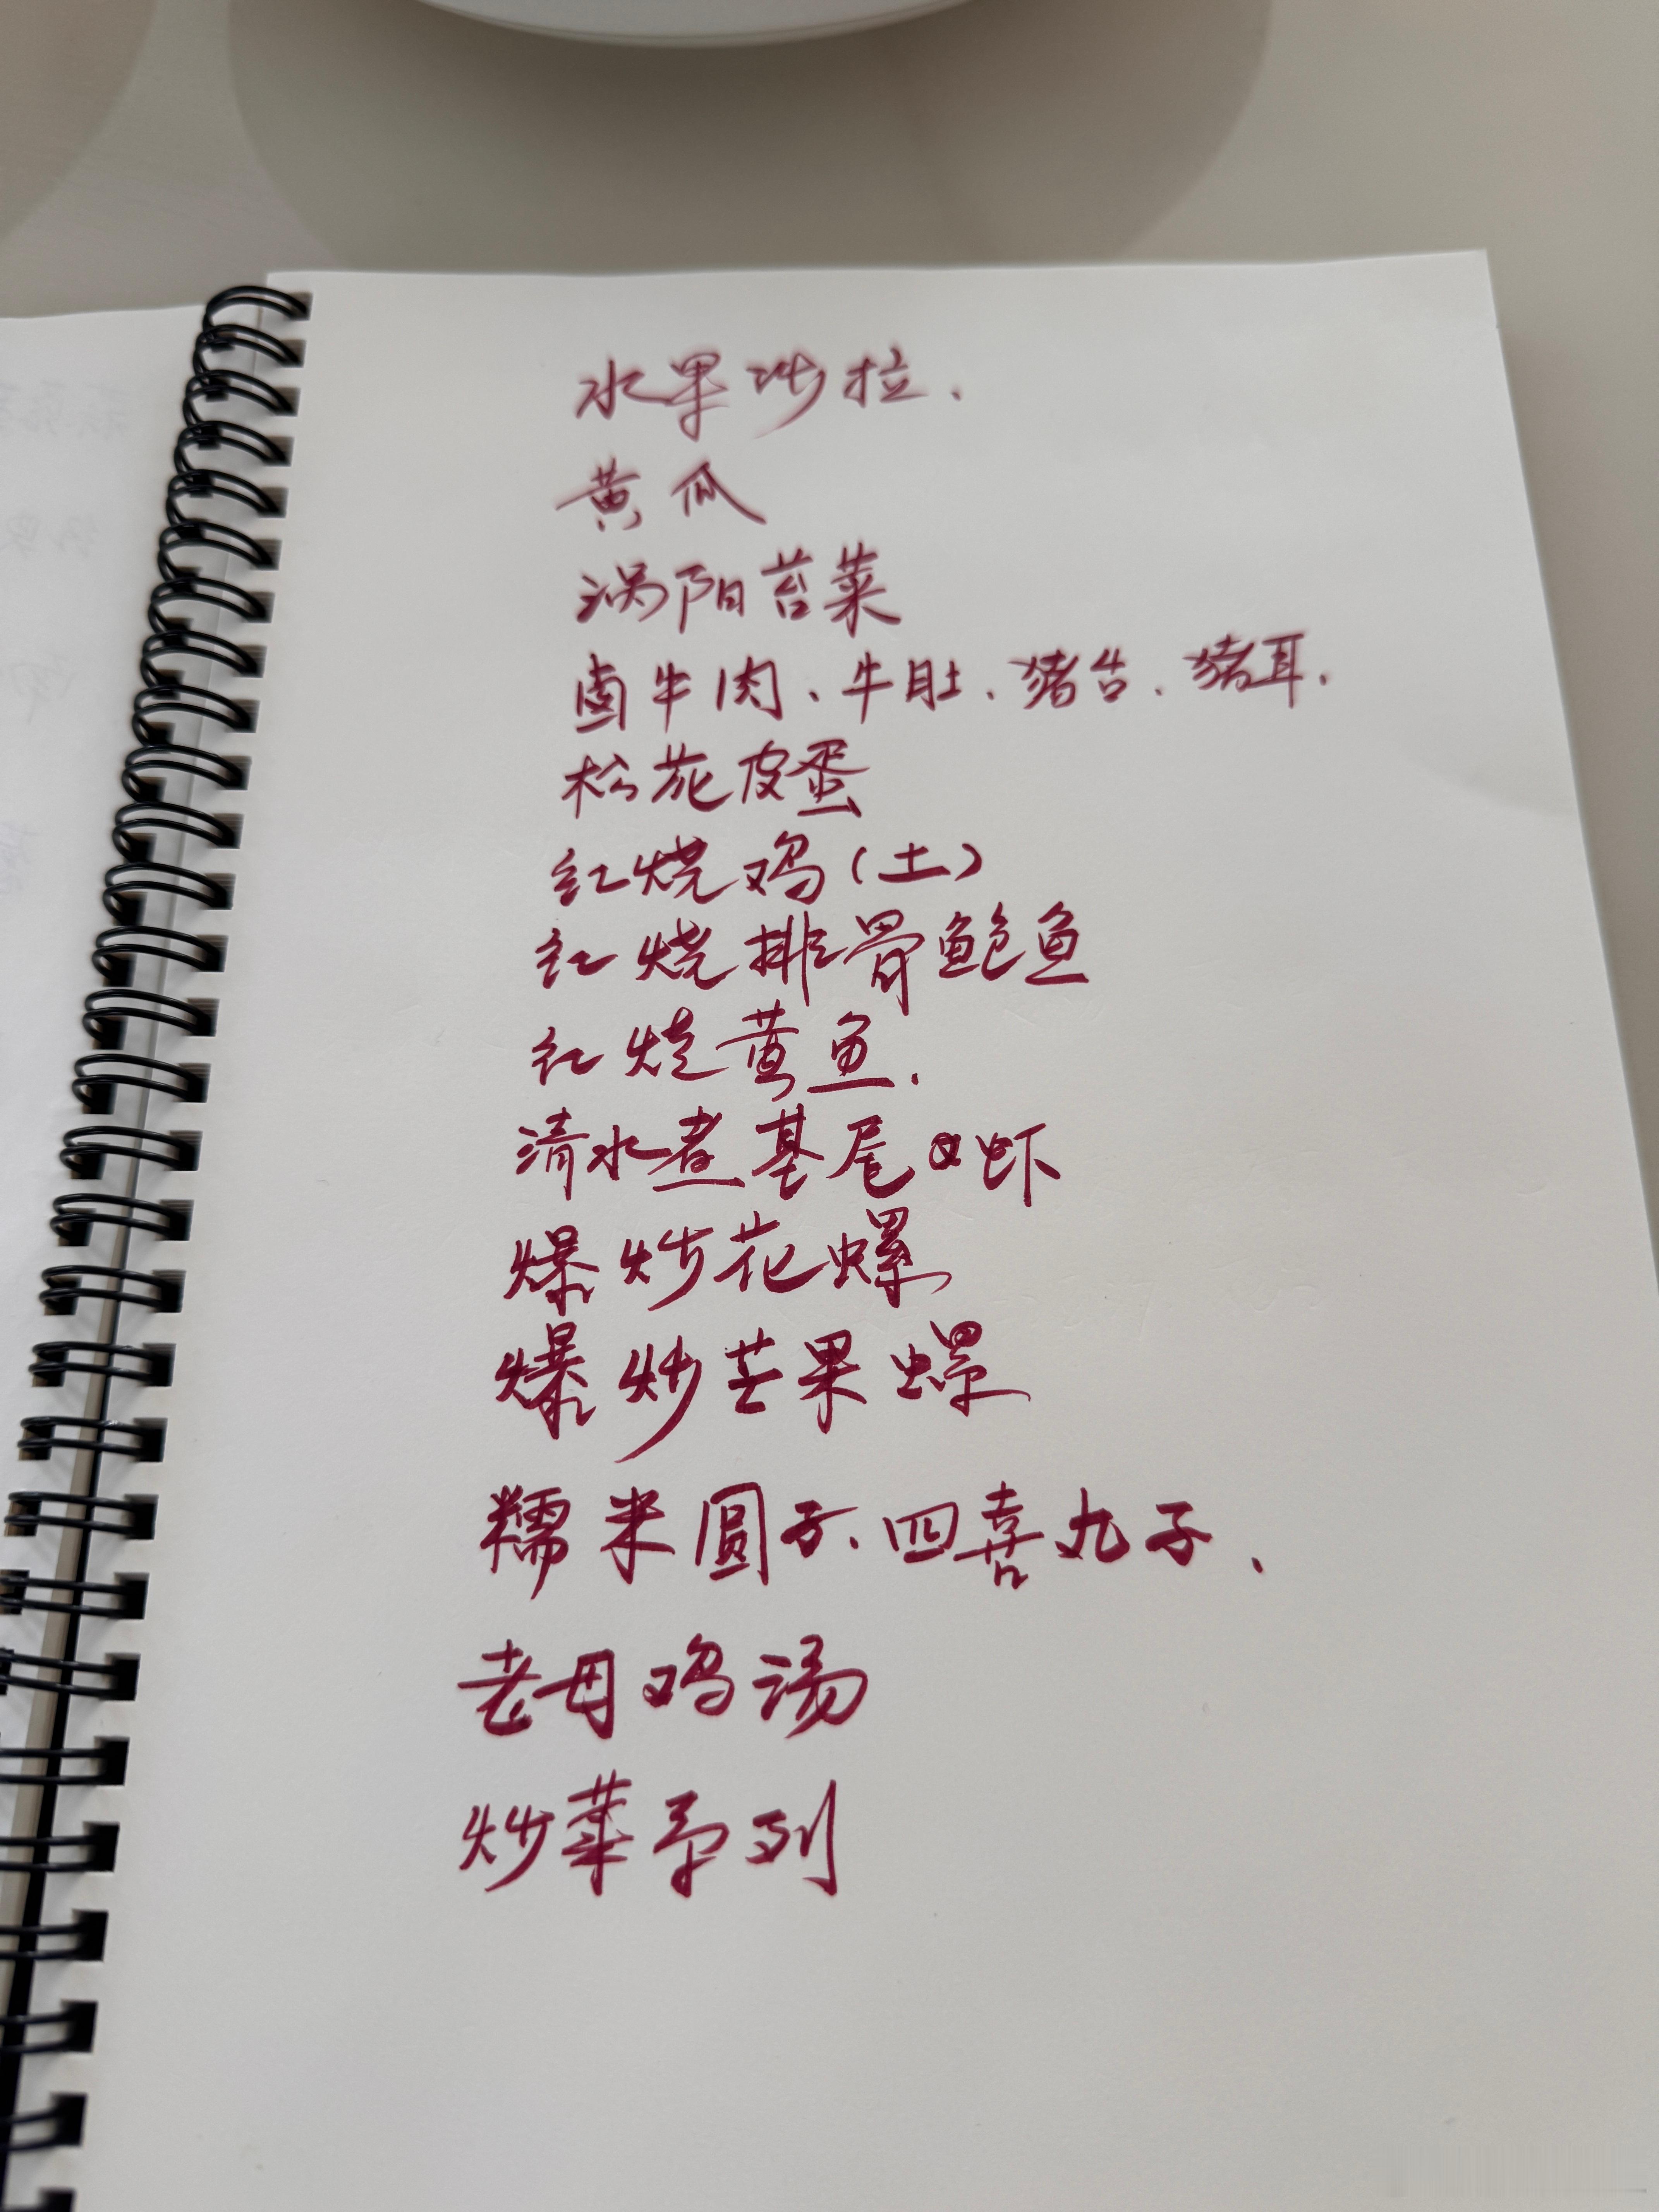 水果沙拉.
黄瓜
涡阳苔菜
卤牛肉、牛肚、猪舌、猪耳.
松花皮蛋
红烧鸡(土)
红烧排骨鲍鱼
红烧黄鱼.
清水煮基尾虾
爆炒花螺
爆炒芒果螺
糯米圆子、四喜丸子、
老母鸡汤
炒菜系列